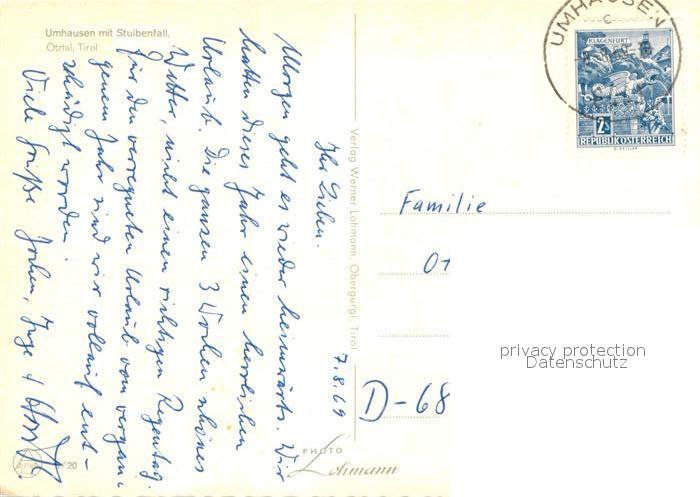 Umhausen mit Stuibenfall,
Ötztal, Tirol
7.8.69
Ihr Lieben.
Morgen geht es wieder heimwärts. Wir
hatten dieses Jahr einen herrlichen
Urlaub. Die ganzen 3 Wochen schönes
Wetter, nicht einen richtigen Regentag.
Für den verregneten Urlaub vom vergan-
genem Jahr sind wir vollauf ent-
schädigt worden.
Viele Grüße Jochen, Inge +
Verlag Werner Lohmann, Obergurgl, Tirol
PHOTO
Lohmann
/20
UMHAUSEN
KLAGENFURT
2S
REPUBLIK ÖSTERREICH
Familie
D-68
privacy protection
Datenschutz